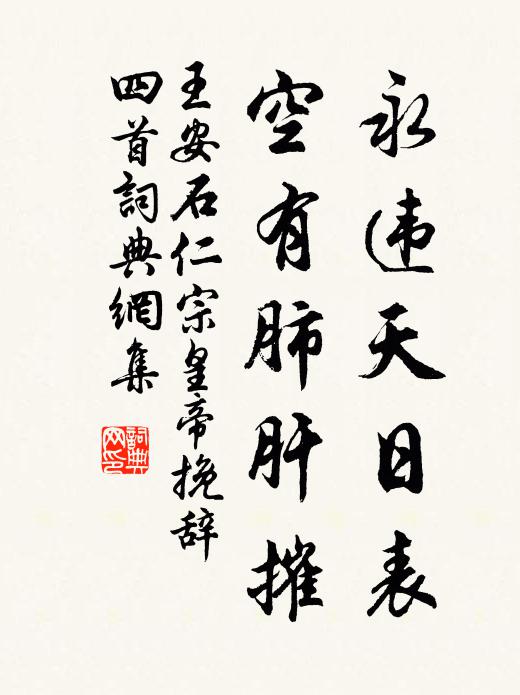 永违天日表
空有肺肝摧
王安石仁宗皇帝挽辞
四首詞典網集
詞典
网印